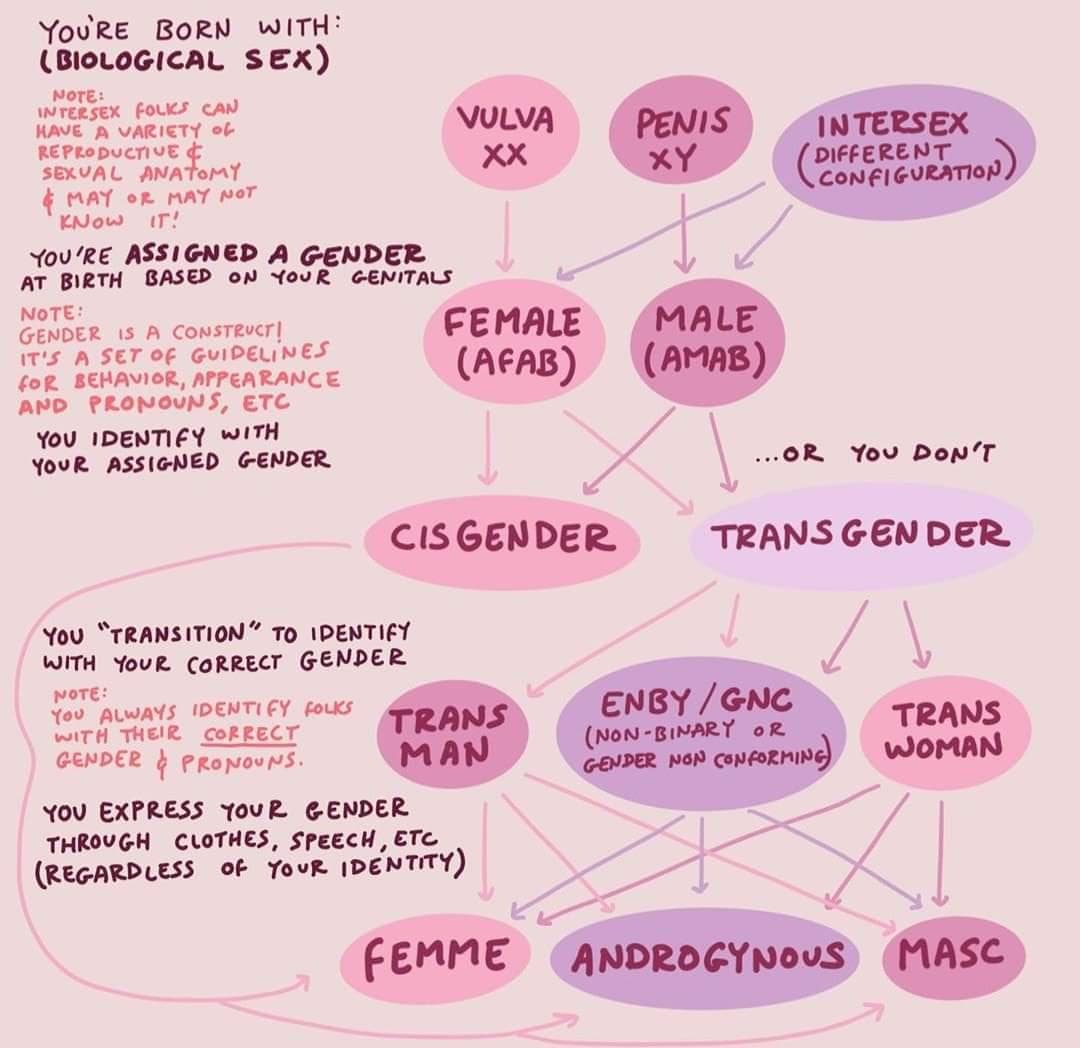 YOU'RE BORN WITH:
(BIOLOGICAL SEX)
NOTE:
INTERSEX FOLKS CAN
HAVE A VARIETY OF
REPRODUCTIVE &
SEXUAL ANATOMY
& MAY OR MAY NOT
KNOW IT!
VULVA
XX
PENIS
XY
INTERSEX
(DIFFERENT
CONFIGURATION)
YOU'RE ASSIGNED A GENDER
AT BIRTH BASED ON YOUR GENITALS
NOTE:
GENDER IS A CONSTRUCT!
IT'S A SET OF GUIDELINES
FOR BEHAVIOR, APPEARANCE
AND PRONOUNS, ETC
FEMALE
(AFAB)
MALE
(AMAB)
YOU IDENTIFY WITH
YOUR ASSIGNED GENDER
...OR YOU DON'T
CISGENDER
TRANSGENDER
YOU "TRANSITION" TO IDENTIFY
WITH YOUR CORRECT GENDER
NOTE:
YOU ALWAYS IDENTIFY FOLKS
WITH THEIR CORRECT
GENDER & PRONOUNS.
TRANS
MAN
ENBY/GNC
(NON-BINARY OR
GENDER NON CONFORMING)
TRANS
WOMAN
YOU EXPRESS YOUR GENDER
THROUGH CLOTHES, SPEECH, ETC
(REGARDLESS OF YOUR IDENTITY)
FEMME
ANDROGYNOUS
MASC